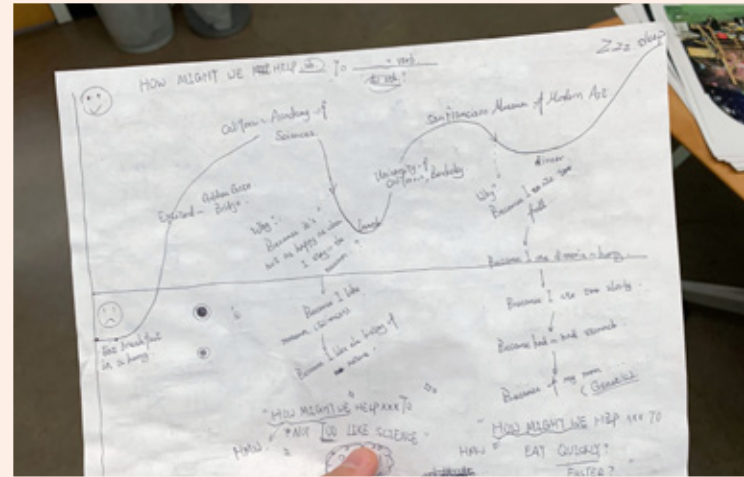 HOW MIGHT WE HELP to verb
to verb
Zzz sleep
California Academy of
Sciences
San Francisco Museum of Modern Art
Golden Gate
Bridge
Excited
University of
California, Berkeley
Lunch
dinner
Why?
Because it's
not as happy as when
I stay in the
museum
Why?
Because I
full
Because I dinner in hurry
Eat breakfast
in a hurry
Because I like
museum
Because I like the history of
nature
Because I eat slowly
Because had a bad stomach
Because of my mom
(Genetics)
"HOW MIGHT WE HELP xxx TO
NOT TOO LIKE SCIENCE"
HMW
"HOW MIGHT WE HELP xxx TO
HMW
EAT QUICKLY?
FASTER?